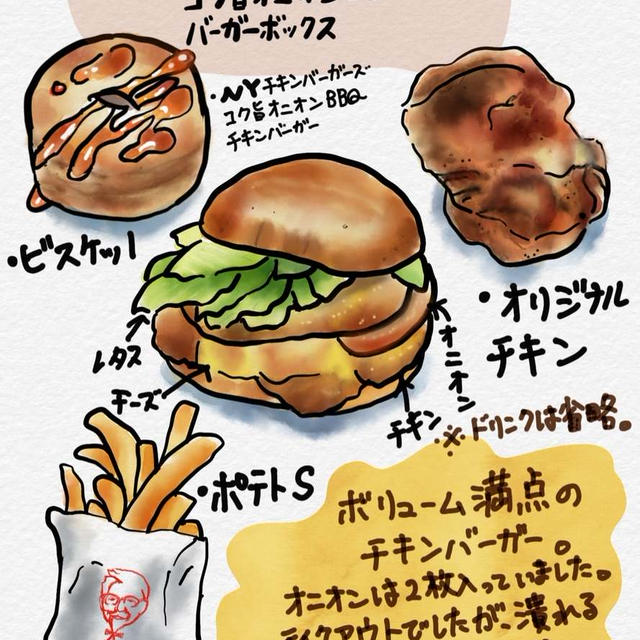 バーガーボックス
・NYチキンバーガーズ
コク旨オニオンBBQ
チキンバーガー
・ビスケット
・オリジナル
チキン
レタス
チーズ
オニオン
チキン
・※ドリンクは省略。
・ポテトS
ボリューム満点の
チキンバーガー。
オニオンは2枚入っていました。
テイクアウトでしたが、潰れる